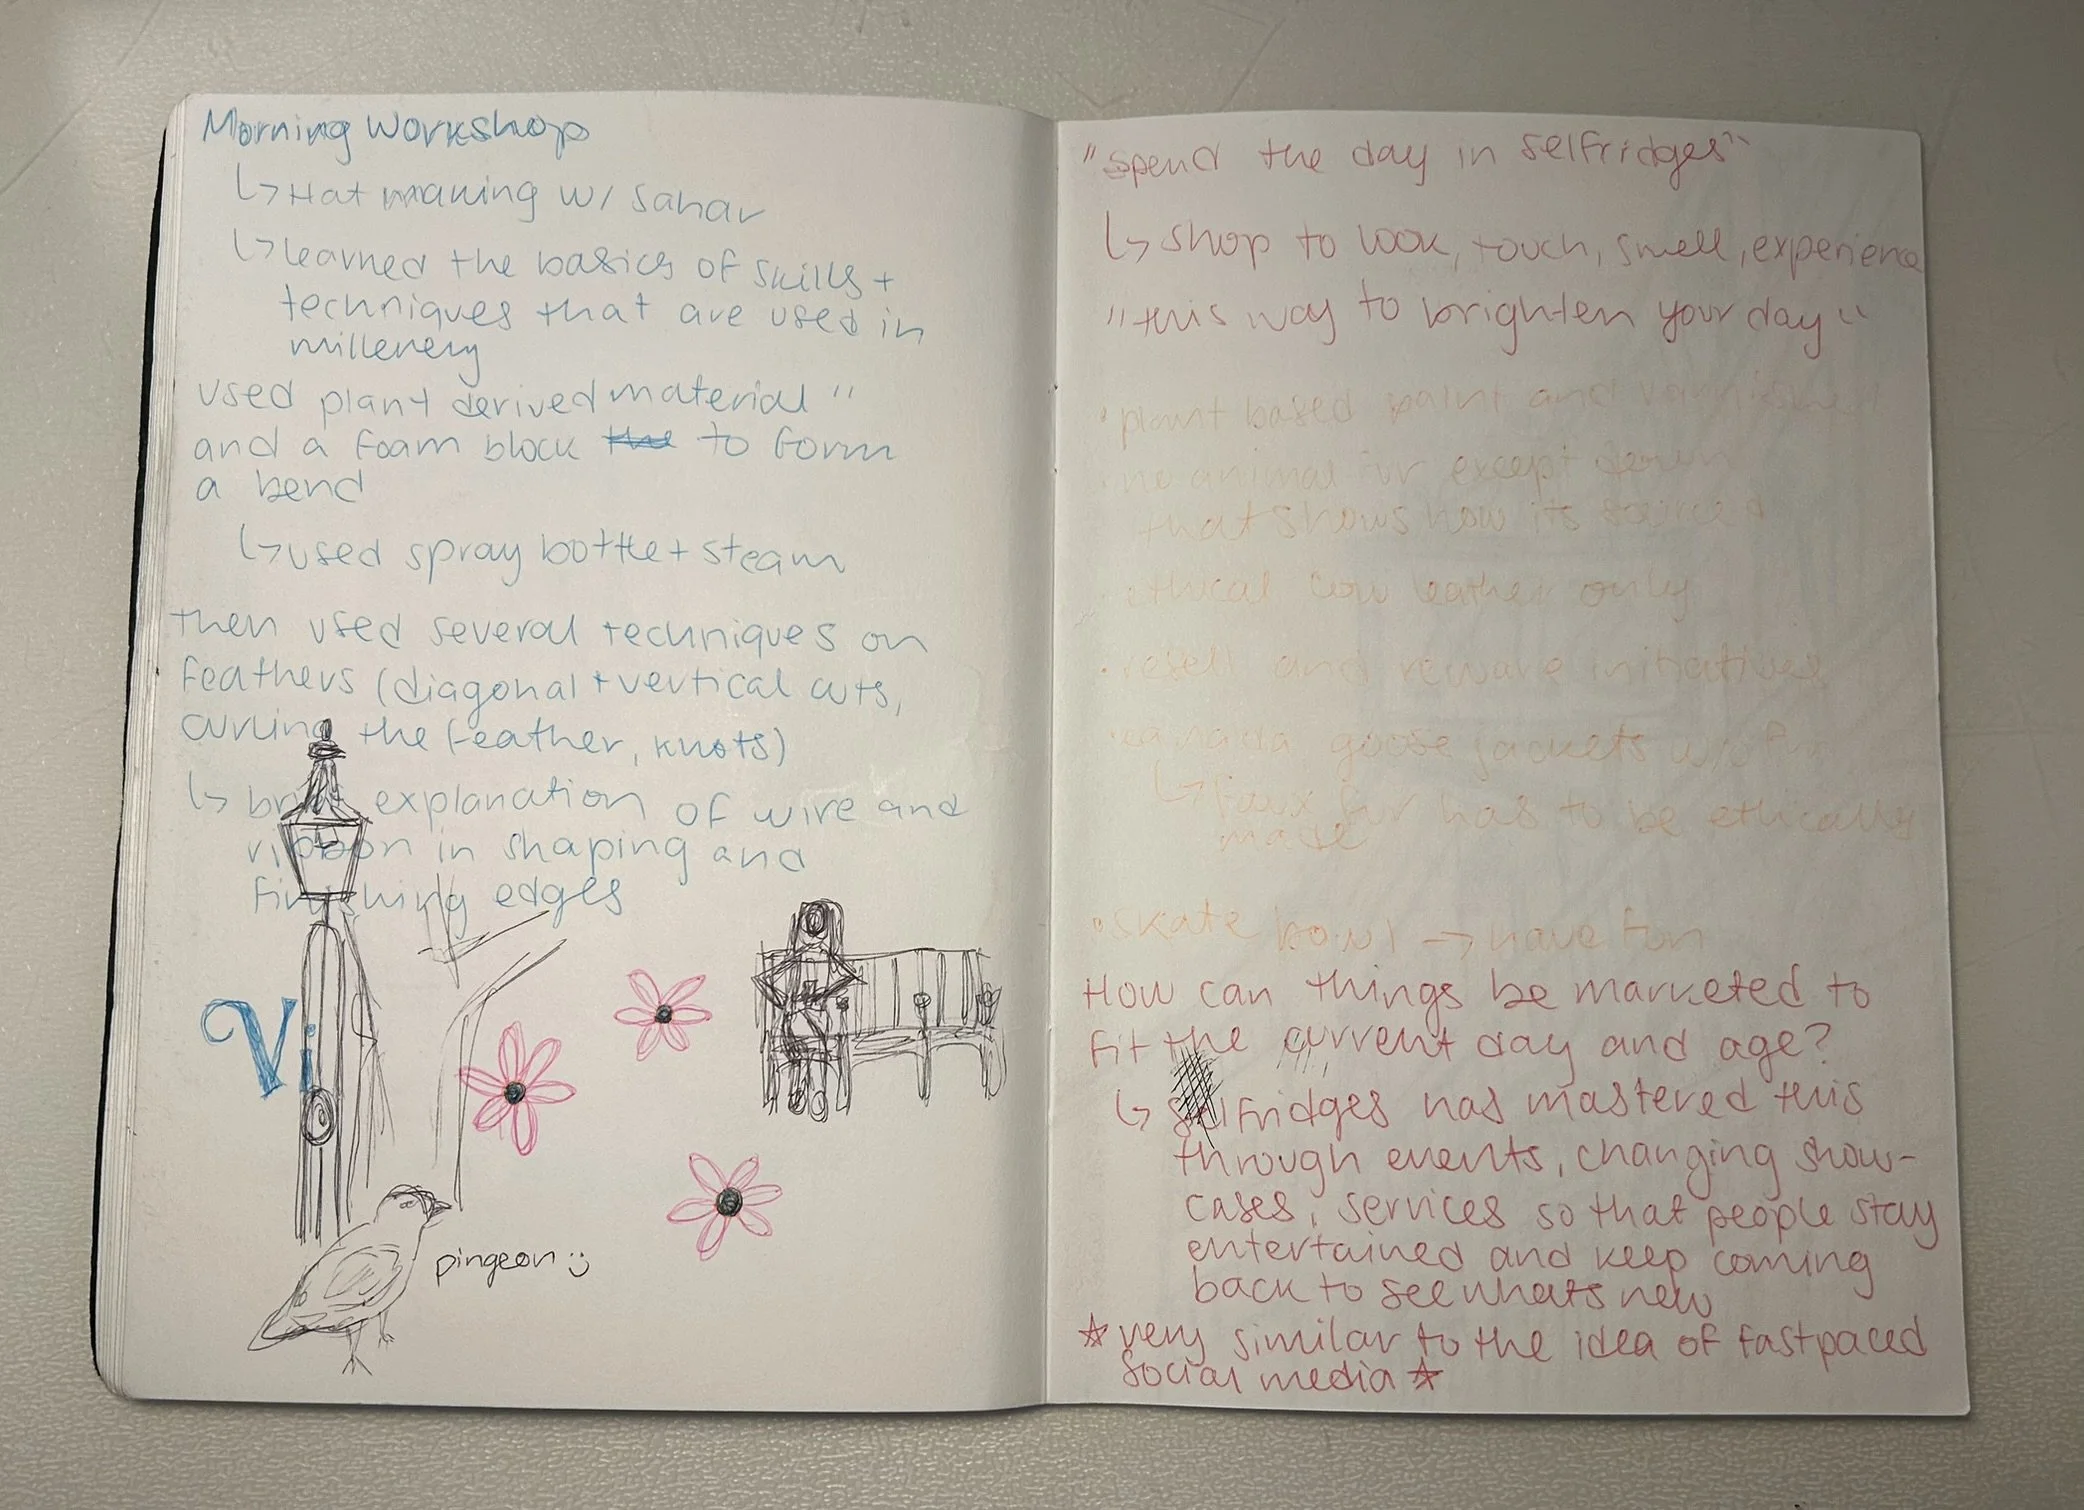 Morning Workshop
↳ Hat making w/ Sahar
↳ learned the basics of skills +
techniques that are used in
millenery
used plant derived material "
and a foam block to form
a bend
↳ used spray bottle + steam
then used several techniques on
feathers (diagonal + vertical cuts,
curling the feather, knots)
↳ brief explanation of wire and
ribbon in shaping and
finishing edges
Vi
pingeon :)
"spend the day in selfridges"
↳ shop to look, touch, smell, experience
"this way to brighten your day"
• plant based paint and
• no animal fur except down
that shows how its sourced
• ethical cow leather only
• resell and reware initiatives
• canada goose jackets w/o fur
↳ faux fur has to be ethically
made
• skate bowl → have fun
How can things be marketed to
fit the current day and age?
↳ selfridges has mastered this
through events, changing show-
cases, services so that people stay
entertained and keep coming
back to see whats new
☆ very similar to the idea of fastpaced
social media ☆